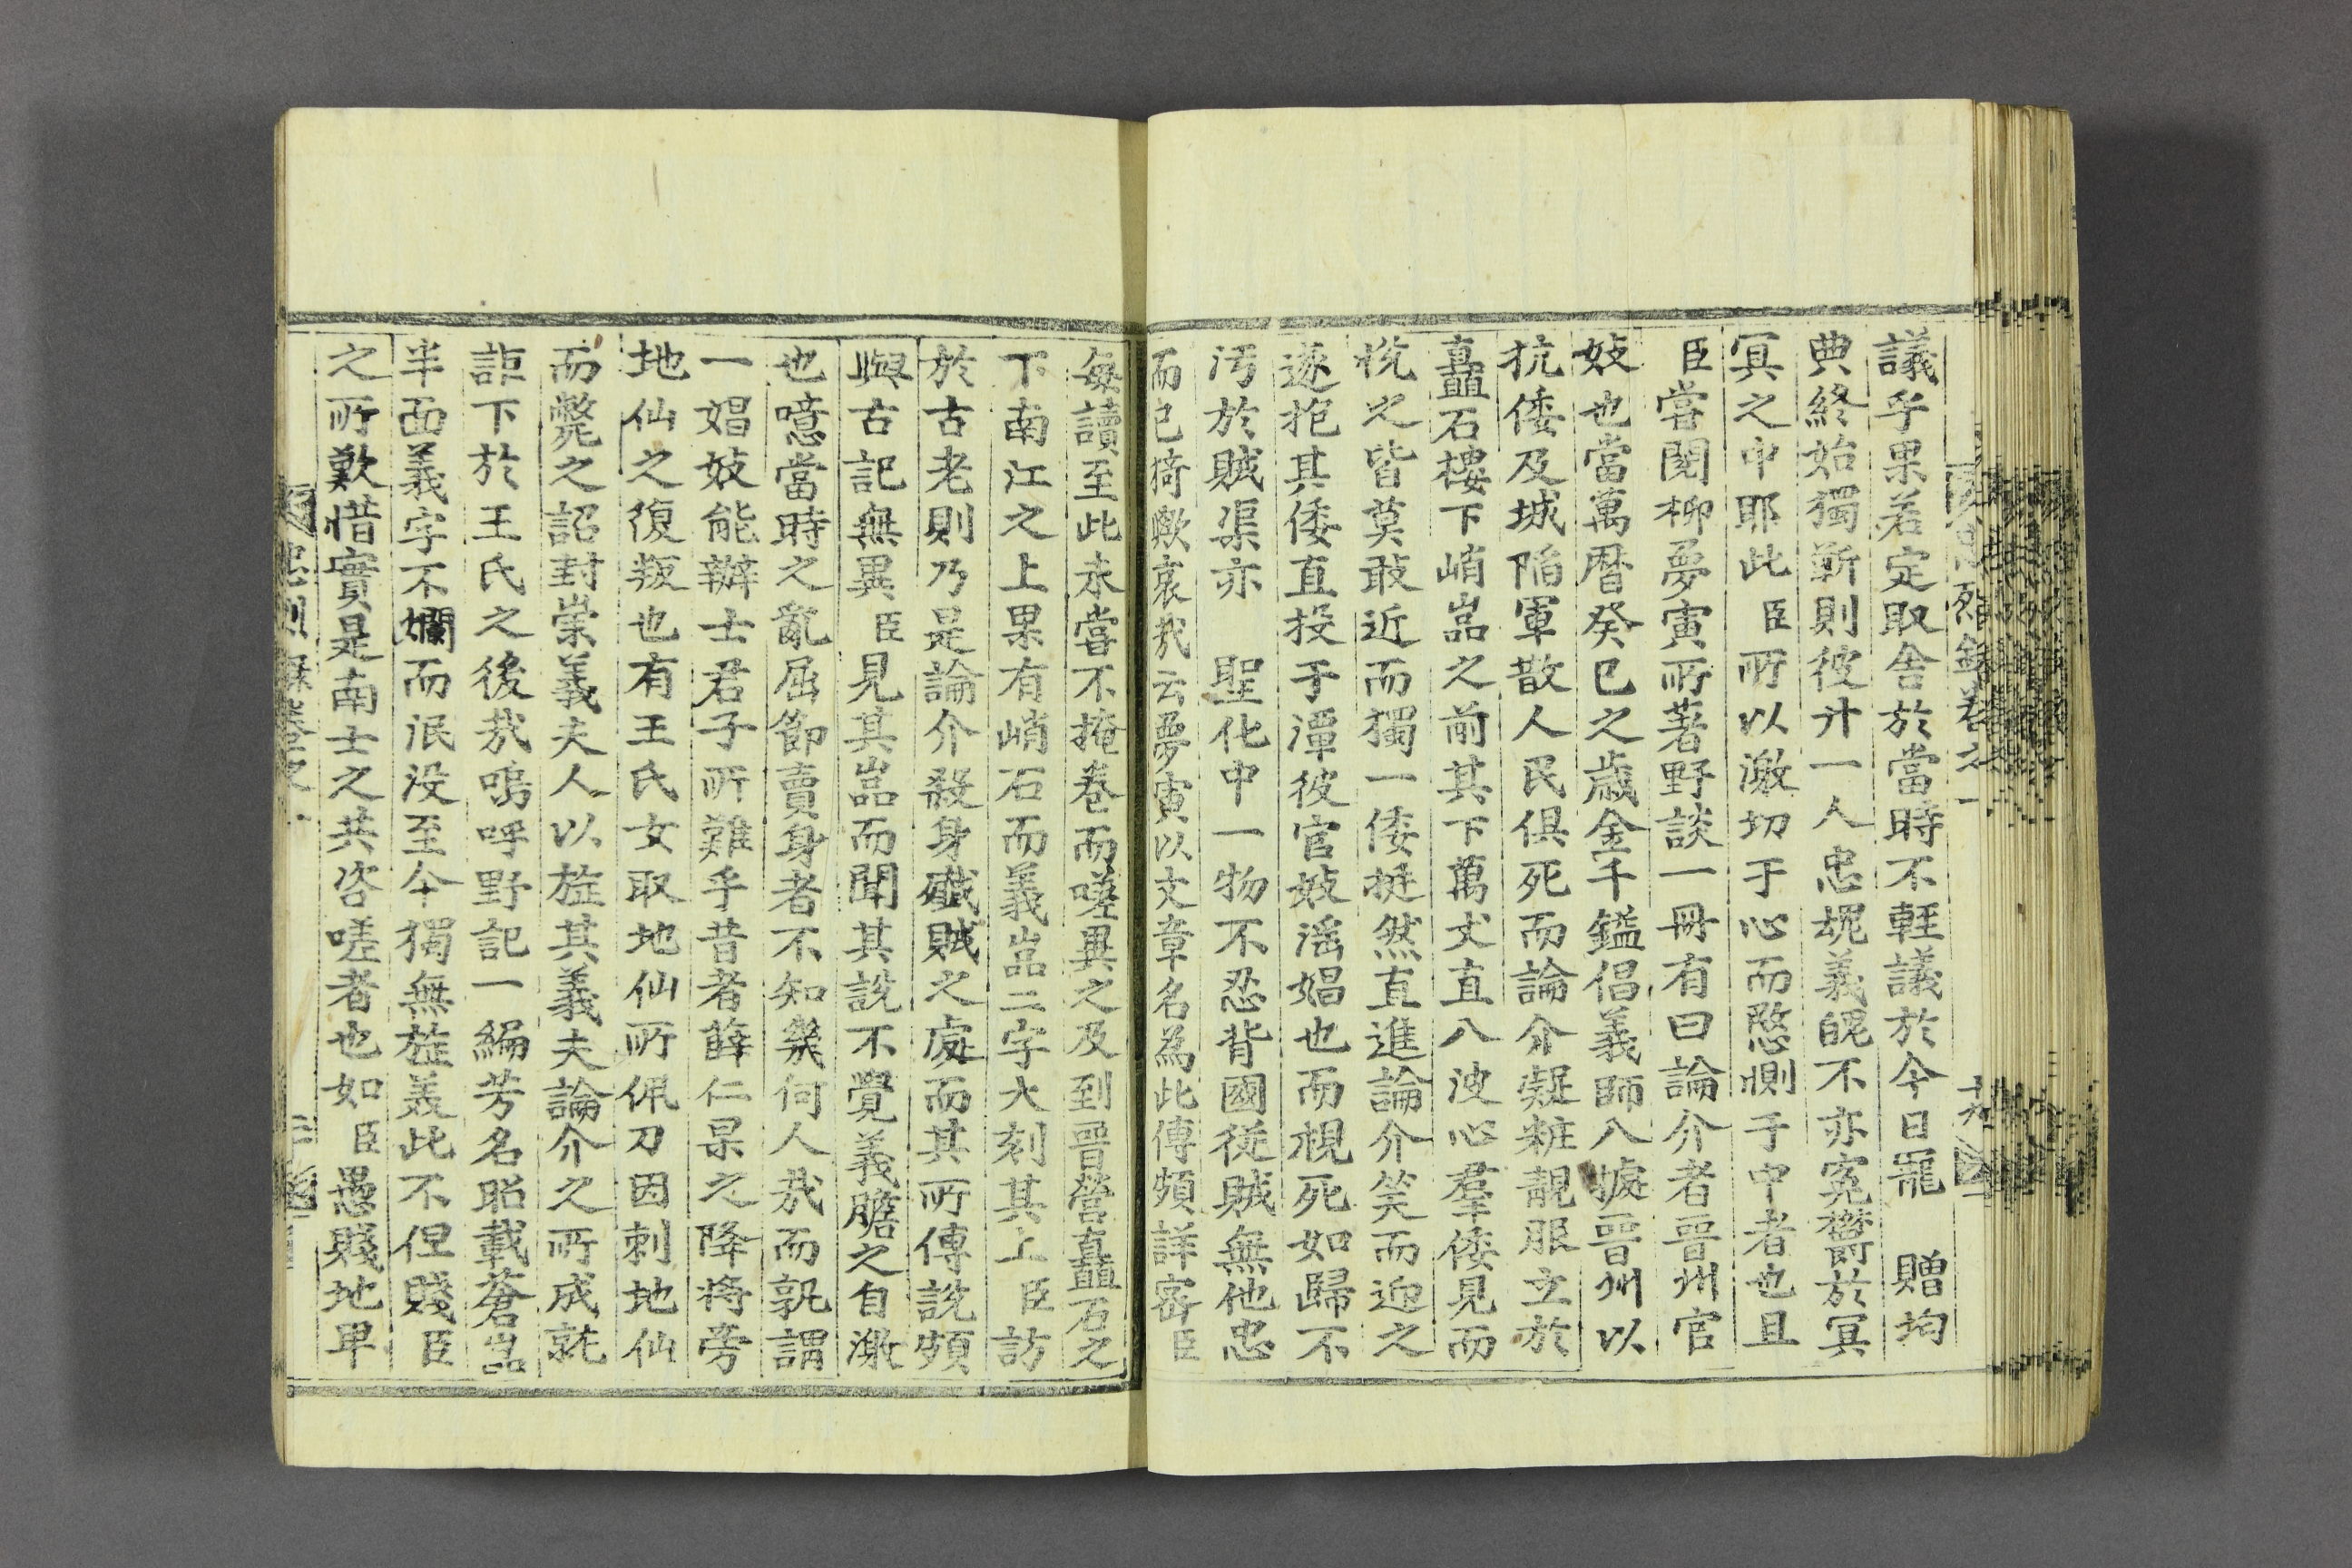 議乎果若定取舍於當時不輕議於今日寵 贈拘
典終始獨靳則彼廾一人忠䰟義魄不亦寃欝於冥
冥之中耶此臣所以激切于心而愍惻于中者也且
臣嘗閱柳夢寅所著野談一冊有曰論介者晋州官
妓也當萬曆癸巳之歲金千鎰倡義師入㨿晋州以
抗倭及城陷軍散人民俱死而論介凝粧靚服立於
矗石樓下峭嵓之前其下萬丈直入波心羣倭見而
悅之皆莫敢近而獨一倭挺然直進論介笑而迎之
遂抱其倭直投于潭彼官妓滛娼也而視死如歸不
汚於賊渠亦 聖化中一物不忍背國從賊無他忠
而已猗歟哀哉云夢寅以文章名爲此傳頗詳密臣
每讀至此未嘗不掩卷而嗟異之及到晋營矗石之
下南江之上果有峭石而義嵓二字大刻其上臣訪
於古老則乃是論介殺身殲賊之處而其所傳說頗
與古記無異臣見其嵓而聞其說不覺義膽之自激
也噫當時之亂屈節賣身者不知幾何人哉而孰謂
一娼妓能辦士君子所難乎昔者薛仁杲之降將旁
地仙之復叛也有王氏女取地仙所佩刀因刺地仙
而斃之詔封崇義夫人以旌其義夫論介之所成就
詎下於王氏之後哉嗚呼野記一編芳名昭載蒼嵓
半面義字不爛而泯沒至今獨無旌義此不但賤臣
之所歎惜實是南士之共咨嗟者也如臣愚賤地卑